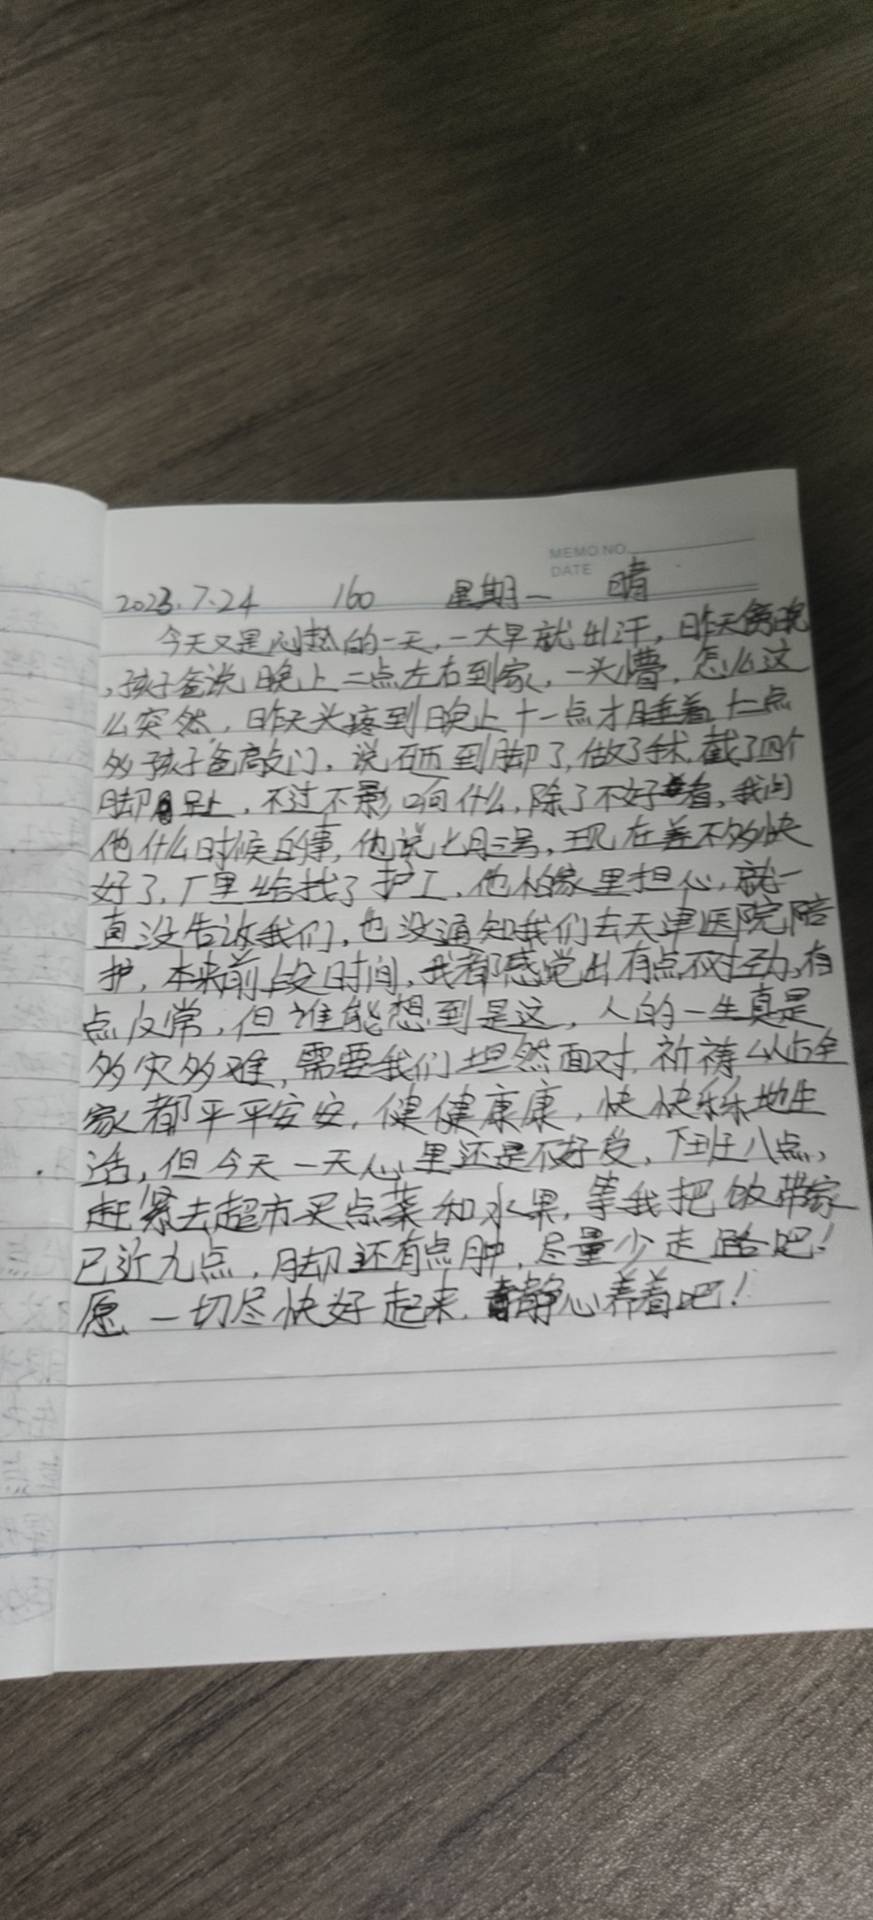 MEMO NO.
DATE
2023.7.24 160 星期一 晴
今天又是闷热的一天,一大早就出汗,昨天傍晚
,孩子爸说晚上二点左右到家,一头懵,怎么这
么突然,昨天头疼到晚上十一点才睡着,十二点
多孩子爸敲门,说砸到脚了,做了手术,截了四个
脚趾,不过不影响什么,除了不好看,我问
他什么时候的事,他说七月三号,现在差不多快
好了,厂里给找了护工,他怕家里担心,就一
直没告诉我们,也没通知我们去天津医院陪
护,本来前段时间,我都感觉出有点不对劲,有
点反常,但谁能想到是这,人的一生真是
多灾多难,需要我们坦然面对,祈祷以后全
家都平平安安,健健康康,快快乐乐地生
活,但今天一天心里还是不好受,下班八点,
赶紧去超市买点菜和水果,等我把饭带家
已近九点,脚还有点肿,尽量少走路吧!
愿一切尽快好起来,静心养着吧!